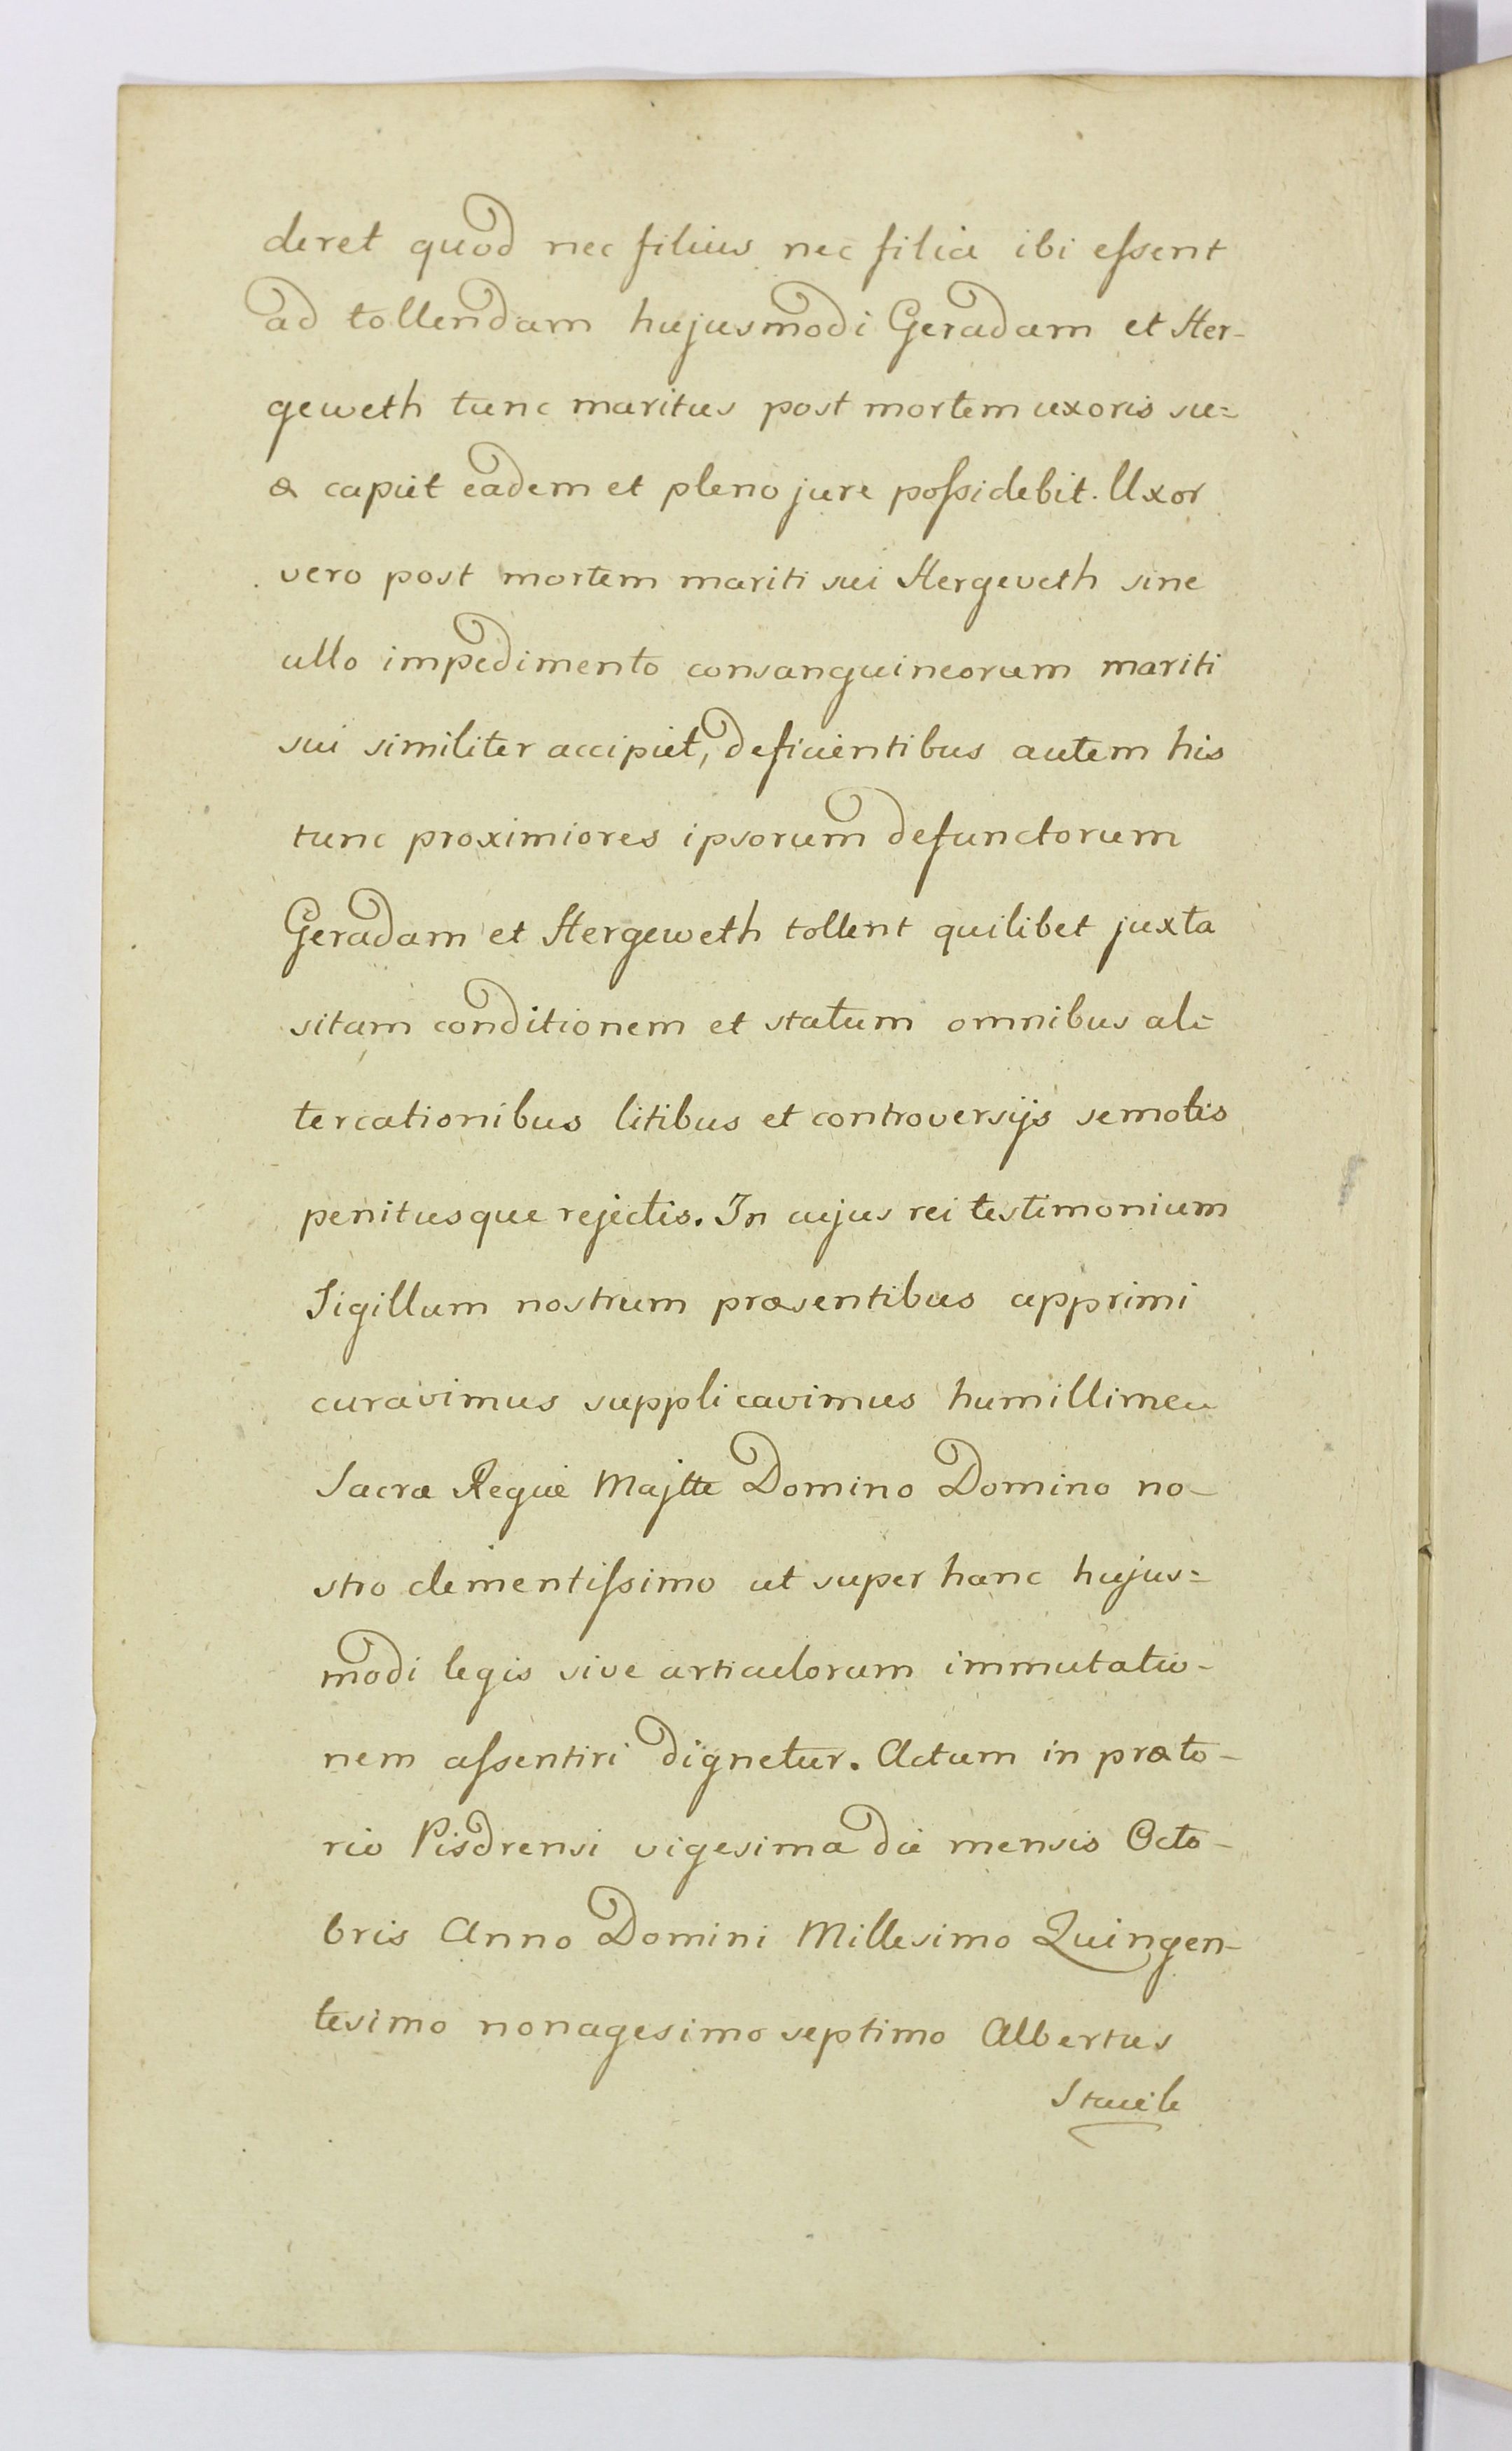 deret quod nec filius nec filia ibi eſsent
ad tollendam hujusmodi Geradam et Her-
geweth tunc maritus post mortem uxoris su=
æ capiet eadem et pleno jure poſsidebit. Uxor
vero post mortem mariti sui Hergeveth sine
ullo impedimento consanguineorum mariti
sui similiter accipiet, deficientibus autem his
tunc proximiores ipsorum defunctorum
Geradam et Hergeweth tollent quilibet juxta
sitam conditionem et statum omnibus al=
tercationibus litibus et controversijs semotis
penitusque rejectis. In cujus rei testimonium
Sigillum nostrum præsentibus apprimi
curavimus supplicavimus humillimeu
Sacræ Regiæ Majtte Domino Domino no-
stro clementiſsimo ut super hanc hujus=
modi legis sive articulorum immutatio-
nem aſsentiri dignetur. Actum in præto-
rio Pisdrensi vigesima die mensis Octo-
bris Anno Domini Millesimo Quingen-
tesimo nonagesimo septimo Albertus